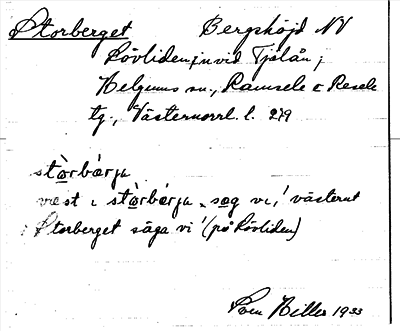 Storberget Bergshöjd NV
Rövliden, n vid Tjälån,
Helgums sn., Ramsele o Resele
tg., Västernorrl. l. 279
stòrbárja
væst i stòrbárja, sog vi,! västerut
Storberget säga vi! (på Rövliden)
Sven Hillas 1933